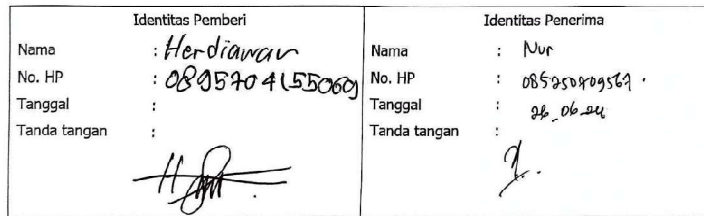 Identitas Pemberi
Nama : Herdiawan
No. HP : 0895704155060
Tanggal :
Tanda tangan :
Identitas Penerima
Nama : Nur
No. HP : 085250809567
Tanggal : 26_06_24
Tanda tangan :